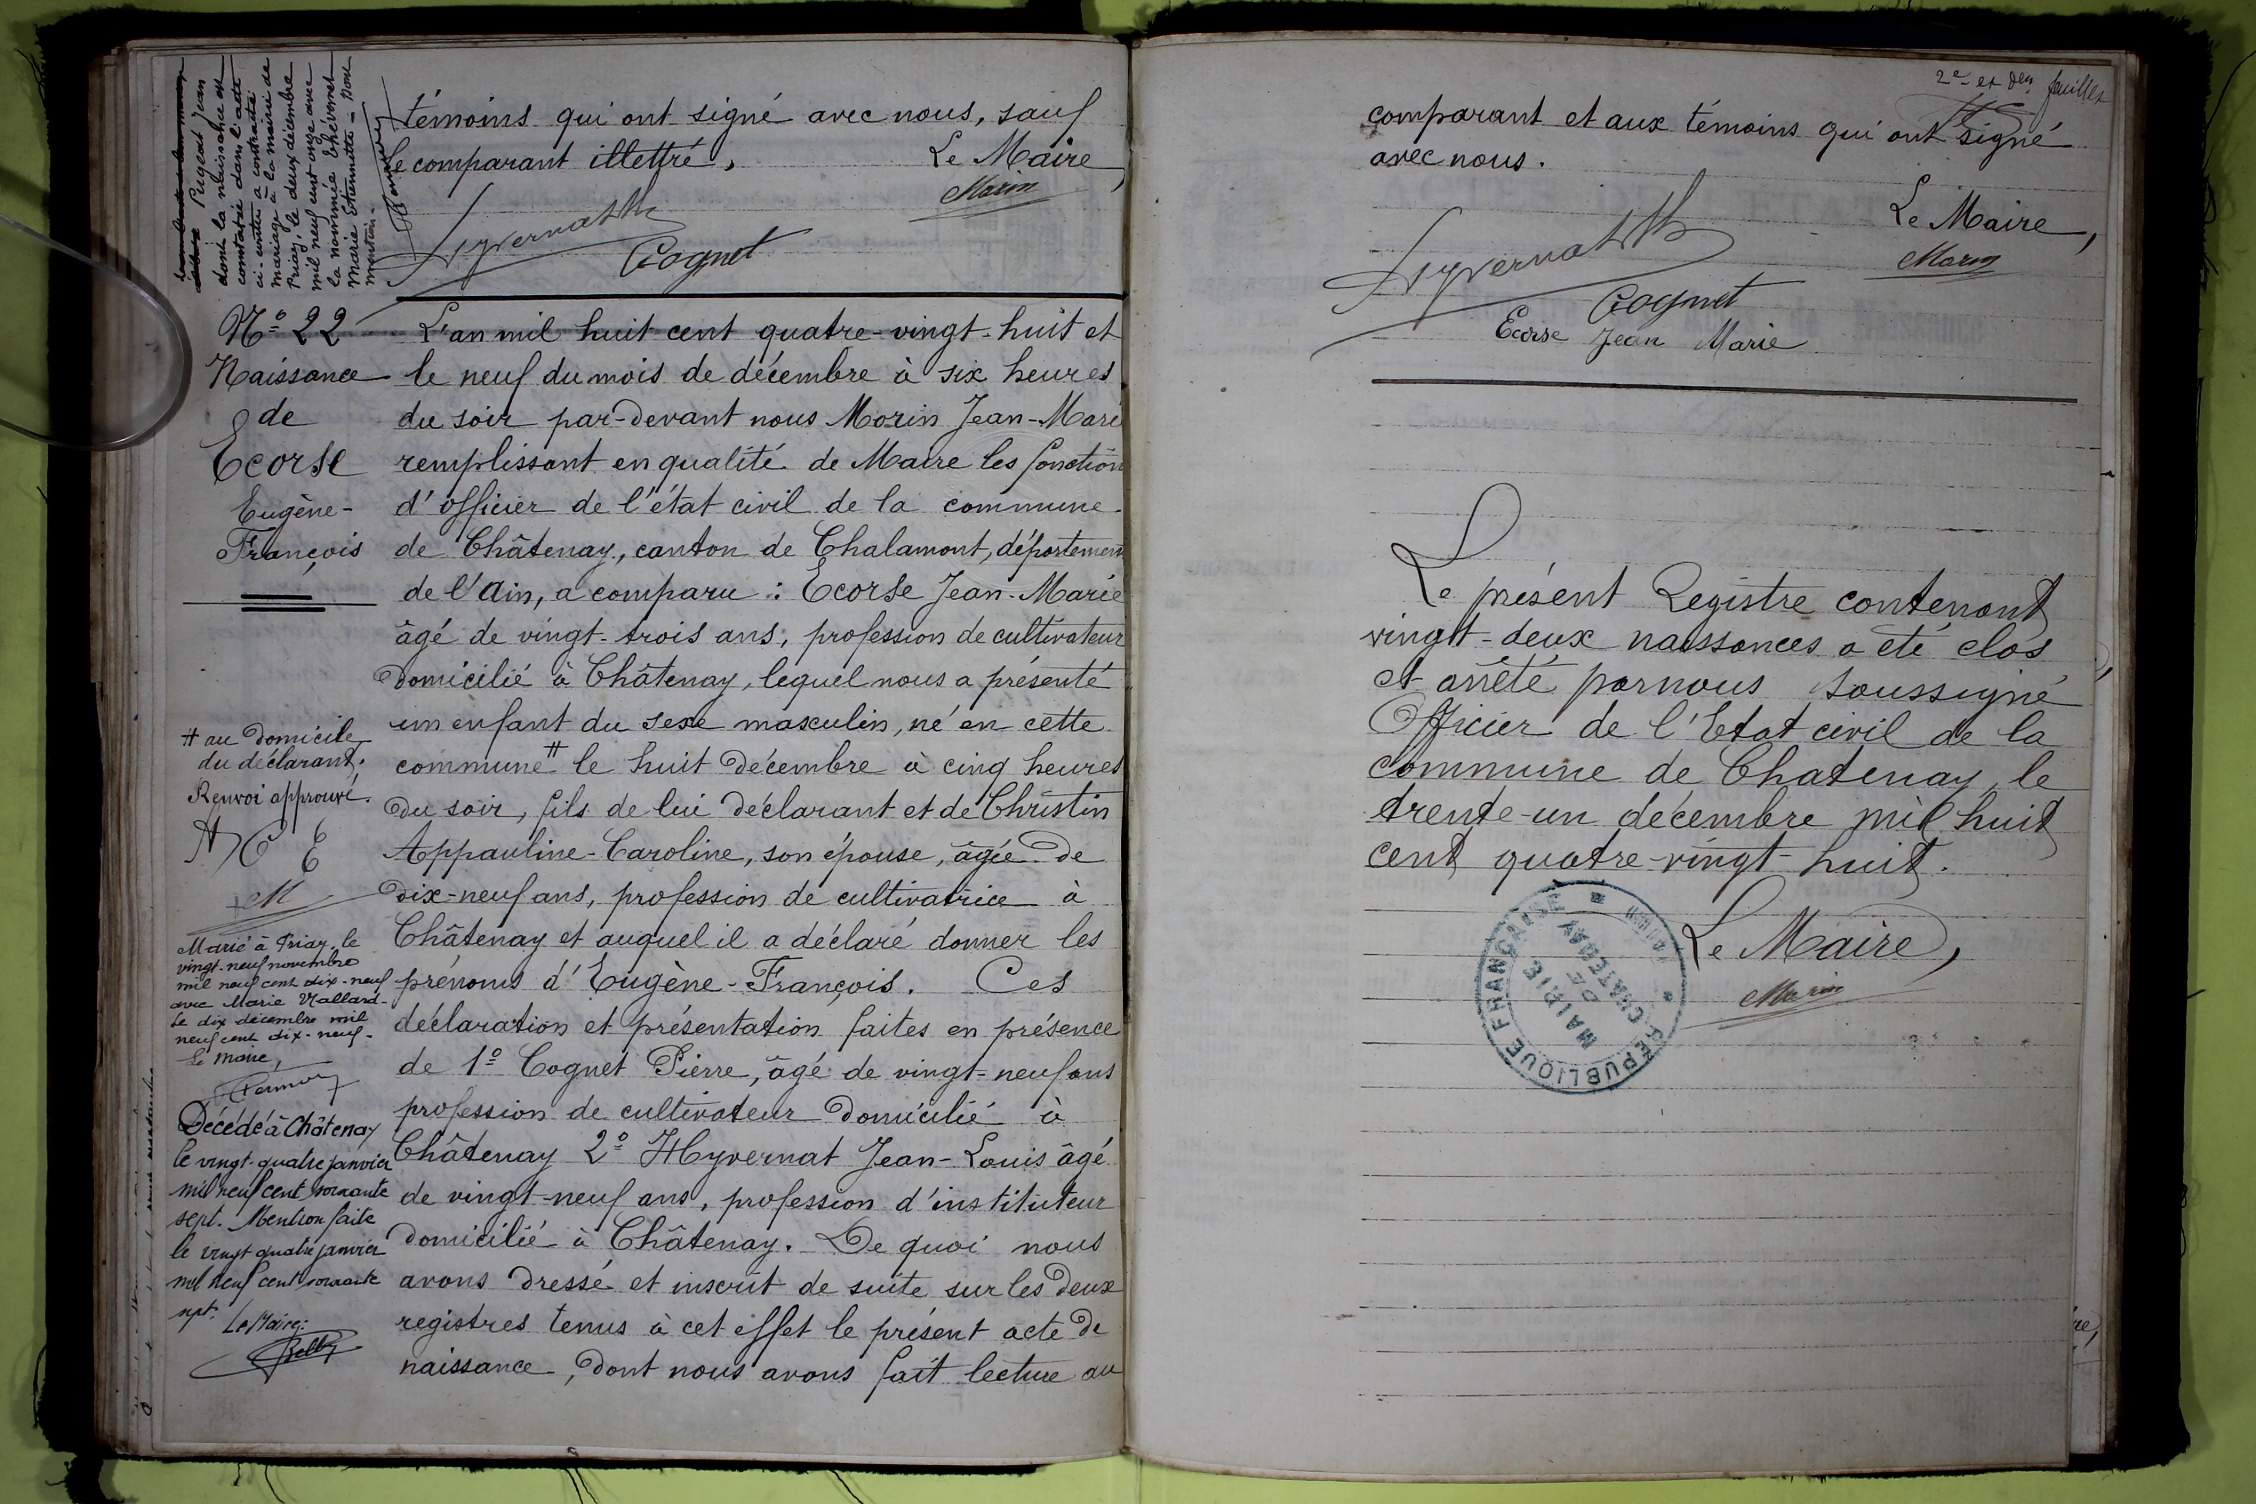 Pugeat Jean
dont la naissance est
constatée dans l'acte
ci-contre a contracté
mariage à la mairie de
Priay, le deux décembre
mil neuf cent onze avec
la nommée
Marie Etiennette - Dont
mention.
témoins qui ont signé avec nous, sauf
le comparant illettré.
Le Maire,
Morin
Hyvernat
Cognet
Nº 22
Naissance
de
Ecorse
Eugène-
François
L'an mil huit cent quatre-vingt-huit et
le neuf du mois de décembre à six heures
du soir par-devant nous Morin Jean-Marie
remplissant en qualité de Maire les fonction
d'officier de l'état civil de la commune
de Châtenay, canton de Chalamont, département
de l'Ain, a comparu : Ecorse Jean-Marie
âgé de vingt-trois ans, profession de cultivateur
domicilié à Châtenay, lequel nous a présenté
un enfant du sexe masculin, né en cette
commune # le huit décembre à cinq heures
du soir, fils de lui déclarant et de Christin
Appauline-Caroline, son épouse, âgée de
dix-neuf ans, profession de cultivatrice à
Châtenay et auquel il a déclaré donner les
prénoms d'Eugène-François. Ces
déclaration et présentation faites en présence
de 1º Cognet Pierre, âgé de vingt-neuf ans
profession de cultivateur domicilié à
Châtenay 2º Hyvernat Jean-Louis âgé
de vingt-neuf ans, profession d'instituteur
domicilié à Châtenay. De quoi nous
avons dressé et inscrit de suite sur les deux
registres tenus à cet effet le présent acte de
naissance, dont nous avons fait lecture au
# au domicile
du déclarant.
Renvoi approuvé.
H C E
M
Marié à Priay, le
vingt-neuf novembre
mil neuf cent dix-neuf
avec Marie Vallard-
Le dix décembre mil
neuf cent dix-neuf-
Le Maire,
Décédé à Châtenay
le vingt-quatre janvier
mil neuf cent soixante
sept. Mention faite
le vingt quatre janvier
mil neuf cent soixante
sept.
Le Maire:
2e et der feuillet
comparant et aux témoins qui ont signé
avec nous.
Le Maire,
Morin
Hyvernat
Cognet
Ecorse Jean Marie
Le présent Registre contenant
vingt-deux naissances a été clos
et arrêté par nous soussigné
Officier de l'Etat civil de la
commune de Chatenay, le
trente-un décembre mil huit
cent quatre-vingt-huit.
Le Maire,
Morin
RÉPUBLIQUE FRANÇAISE
MAIRIE
DE
CHATENAY